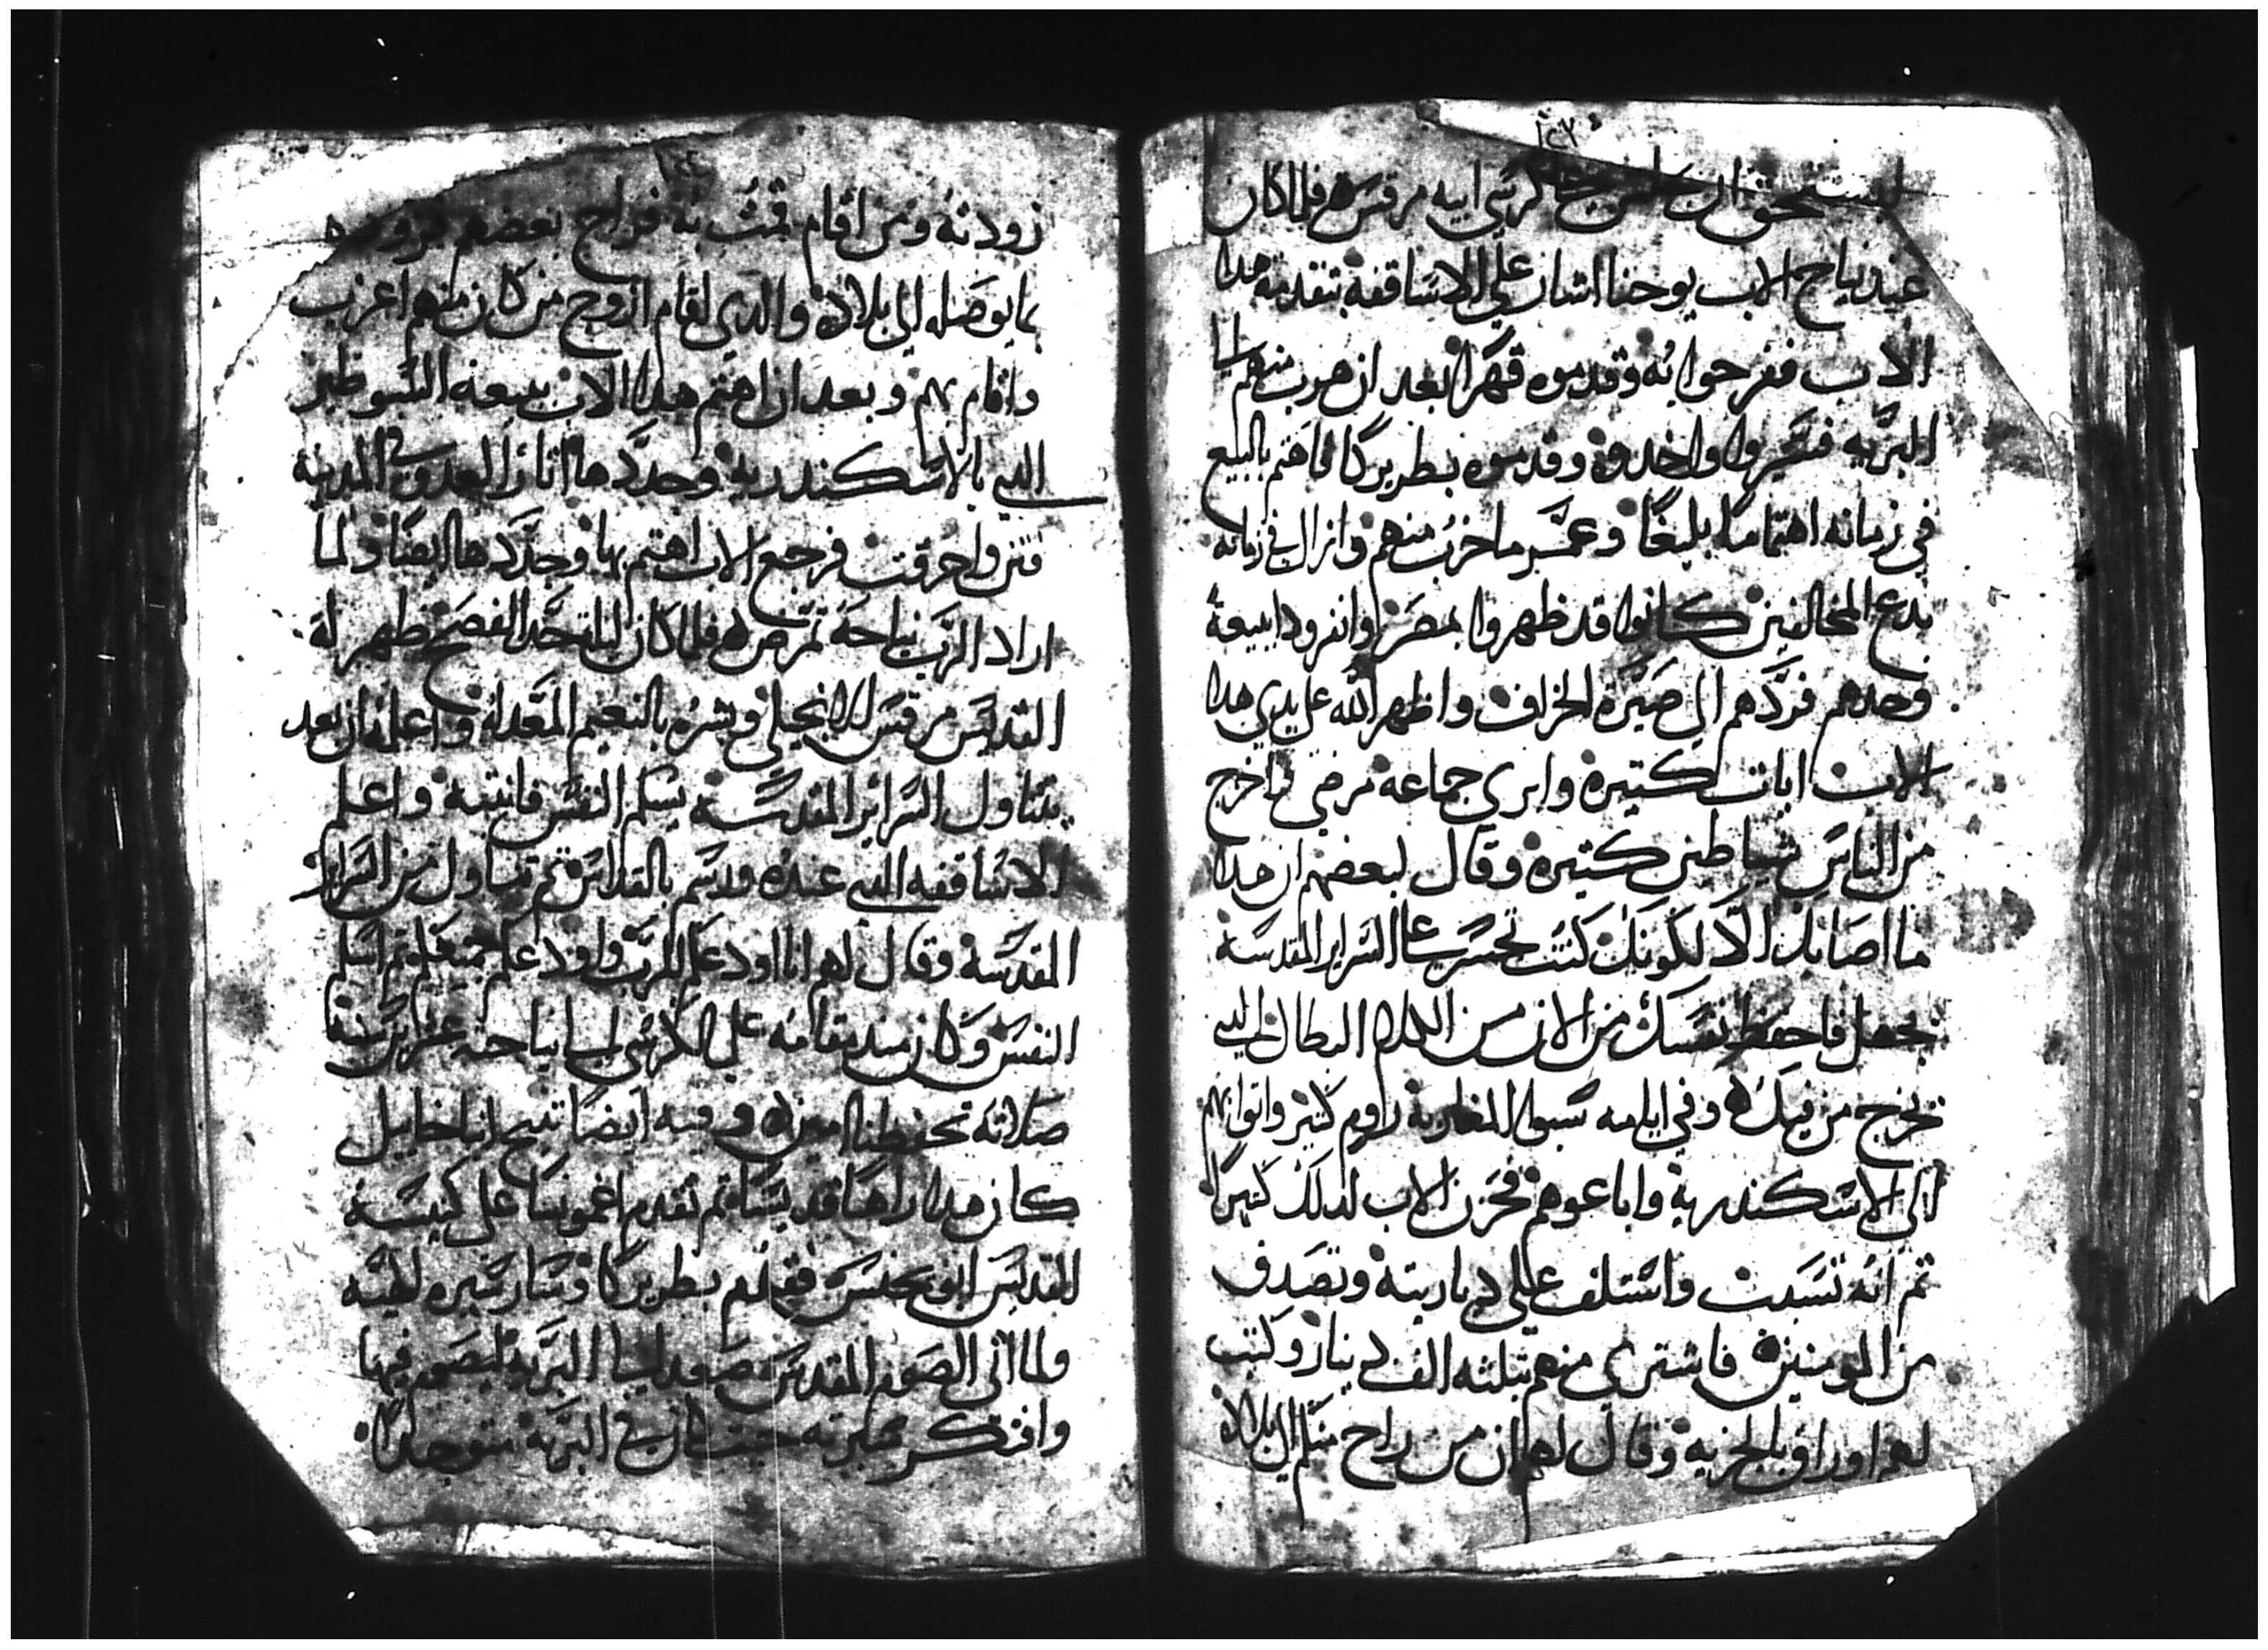 ليستحق ان يجلس علي كرسي ابيه مرقس فلما كان
عند نياح الاب يوحنا اشار علي الاساقفه بتقدمة هدا
الاب ففرحوا به وقدموه قهرا بعد ان هرب منهم الي
البريه فتبعوا واخدوه وقدموه بطريركا فاهتم بالبيع
في زمانه اهتماما بليغا وعمر ما خرب منهم وازال في زمانه
بدع المخالفين كانوا قد ظهروا بمصر وانفرودا ببيعة
وحدهم فردهم الي صيرة الخراف واظهر الله علي يدي هدا
الاب ايات كتيره وابري جماعه مرضي واخرج
من الناس شياطين كتيره وقال لبعضهم ان هدا
ما اصابك الا لكونك كنت تجسر علي السراير المقدسة
بجهل فاحفظ نفسك من الان من الكلام البطال الدي
يخرج من فيك وفي ايامه سبوا المغاربة راوم كتير واتوا بهم
الي الاسكندرية واباعوهم فحزن الاب لدلك كتيرا
تم انه تسبب واستلف علي دياريته وتصدف
من المومنين فاشتري منهم بتلتة الف دينار وكتب
لهم اوراق بالجزية وقال لهم ان من راح منكم الي بلاده
زودته ومن اقام قمت به فراح بعضهم فزودهم
بما يوصله الي بلاده والدي اقام ازوج من كان منهم اعزب
واقام بهم وبعد ان اهتم هدا الاب ببيعة السوطير
التي بالاسكندرية وجددها اثار العدو في المدينة
فتن واحرقت فرجع الاب اهتم بها وجددها ايضا ولما
اراد الرب نياحه تمرض فلما كان ليلة حد الفصح ظهر له
القديس مرقس الانجيلي وبشره بالنعيم المعد له واعلمه ان بعد
يتناول السراير المقدسة يسلم النفس فانتبه واعلم
الاساقفه التي عنده ورسم بالقداس تم تناول من السراير
المقدسة وقال لهم انا اودعكم للرب واودعكم جميعكم تم اسلم
النفس وكان مدة مقامه علي الكرسي الي نياحته عشرين سنة
صلاته تحفظنا امين وفيه ايضا تنيح انبا خاييل
كان هدا راهبا قديسا تم تقدم اغمونسا علي كنيسة
القديس ابو يحنس فقدم بطريركا وسار سيره لهيه
ولما اتي الصوم المقدس صعد الي البريه ليصوم فيها
وافتكر سيرته حيث كان في البرية متوحدا